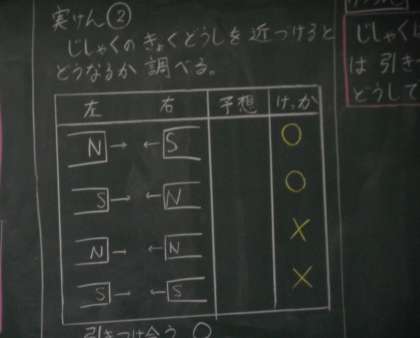 実けん②
じしゃくのきょくどうしを近づけると
どうなるか調べる。
左 右 予想 けっか
N → ← S ○
S → ← N ○
N → ← N ×
S → ← S ×
引きつけ合う ○
じしゃくに
は引き
どうして